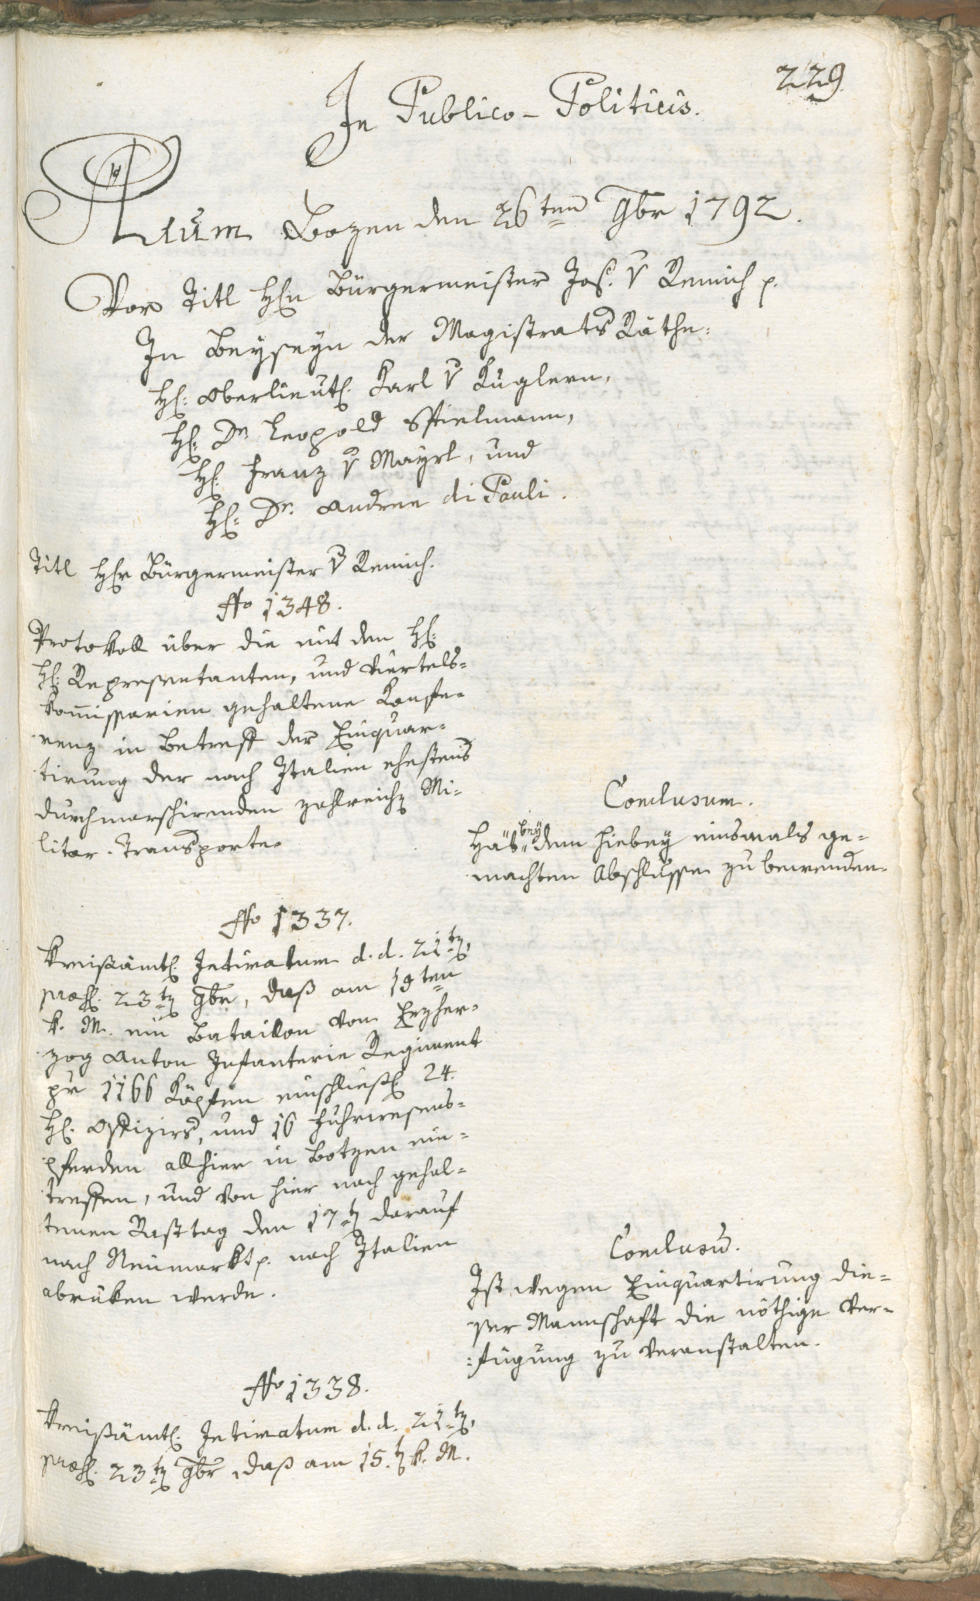 229.
In Publico-Politicis.
Actum Bozen den 26ten 9br 1792.
Vor Titl Hℓn Bürgermeister Jos. v Remich p.
In Beyseyn der Magistrats Räthe:
Hℓ: Oberlieutℓ. Karl v Kuglern,
Hℓ: Dr. Leopold Spielmann,
Hℓ: Franz v Mayrl, und
Hℓ: Dr. Andree di Pauli.
Titl Hℓr Bürgermeister v Remich.
No 1348.
Protokoll über die mit den Hℓ:
Hℓ: Representanten, und Viertels-
kom̅issarien gehaltene Konfe-
renz in Betreff der Einquar-
tirung der nach Italien ehestens
durchmarschirenden zahlreichȝ Mi-
litar-Transporte.
Conclusum.
Häts bey dem hiebey einsmals ge-
machten Abschlusse zu bewenden.
No 1337.
Kreisämtℓ. Intimatum d.d. 21tȝ,
præsℓ. 23tȝ 9br, daß am 15ten
k. M. ein Bataillon vom Erzher-
zog Anton Infanterie Regiment
pr 1166 Köpfen einschließℓ 24.
Hℓ. Offizirs, und 16 Fuhrwesens-
pferden allhier in Botzen ein-
treffen, und von hier nach gehal-
tenen Rasttag den 17tȝ darauf
nach Neumarkt p. nach Italien
abrüken werde.
Conclusū.
Ist wegen Einquartirung die-
ser Mannschaft die nöthige Ver-
fügung zu veranstalten.
No 1338.
Kreißämtℓ. Intimatum d.d. 21tȝ,
præsℓ. 23tȝ 9br, daß am 15.tȝ k. M.